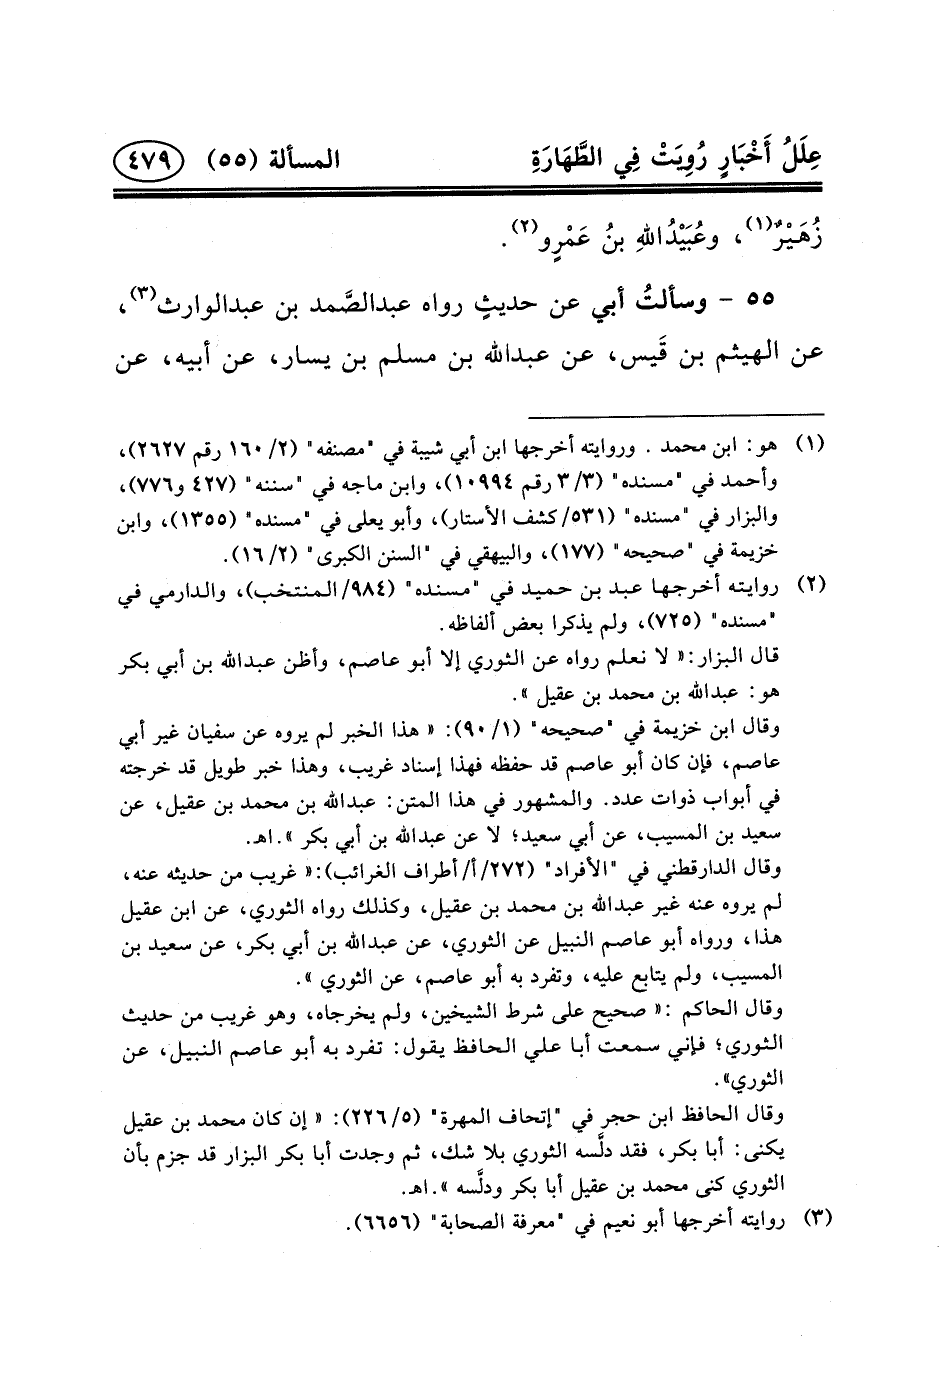 عِلَلُ أَخْبَارٍ رُوِيَتْ فِي الطَّهَارَةِ المسألة (٥٥) ٤٧٩
زُهَيْرٌ(١)، وعُبَيْدُاللهِ بنُ عَمْرٍو(٢).
٥٥ - وسألتُ أبي عن حديثٍ رواه عبدالصَّمد بن عبدالوارث(٣)،
عن الهيثم بن قَيس، عن عبدالله بن مسلم بن يسار، عن أبيه، عن
(١) هو: ابن محمد . وروايته أخرجها ابن أبي شيبة في "مصنفه" (٢/ ١٦٠ رقم ٢٦٢٧)،
وأحمد في "مسنده" (٣/ ٣ رقم ١٠٩٩٤)، وابن ماجه في "سننه" (٤٢٧ و٧٧٦)،
والبزار في "مسنده" (٥٣١/ كشف الأستار)، وأبو يعلى في "مسنده" (١٣٥٥)، وابن
خزيمة في "صحيحه" (١٧٧)، والبيهقي في "السنن الكبرى" (٢/ ١٦).
(٢) روايته أخرجها عبد بن حميد في "مسنده" (٩٨٤/ المنتخب)، والدارمي في
"مسنده" (٧٢٥)، ولم يذكرا بعض ألفاظه.
قال البزار: « لا نعلم رواه عن الثوري إلا أبو عاصم، وأظن عبدالله بن أبي بكر
هو: عبدالله بن محمد بن عقيل ».
وقال ابن خزيمة في "صحيحه" (١/ ٩٠): « هذا الخبر لم يروه عن سفيان غير أبي
عاصم، فإن كان أبو عاصم قد حفظه فهذا إسناد غريب، وهذا خبر طويل قد خرجته
في أبواب ذوات عدد. والمشهور في هذا المتن: عبدالله بن محمد بن عقيل، عن
سعيد بن المسيب، عن أبي سعيد؛ لا عن عبدالله بن أبي بكر ». اهـ.
وقال الدارقطني في "الأفراد" (٢٧٢/ أ/ أطراف الغرائب): « غريب من حديثه عنه،
لم يروه عنه غير عبدالله بن محمد بن عقيل، وكذلك رواه الثوري، عن ابن عقيل
هذا، ورواه أبو عاصم النبيل عن الثوري، عن عبدالله بن أبي بكر، عن سعيد بن
المسيب، ولم يتابع عليه، وتفرد به أبو عاصم، عن الثوري ».
وقال الحاكم : « صحيح على شرط الشيخين، ولم يخرجاه، وهو غريب من حديث
الثوري؛ فإني سمعت أبا علي الحافظ يقول: تفرد به أبو عاصم النبيل، عن
الثوري».
وقال الحافظ ابن حجر في "إتحاف المهرة" (٥/ ٢٢٦): « إن كان محمد بن عقيل
يكنى: أبا بكر، فقد دلَّسه الثوري بلا شك، ثم وجدت أبا بكر البزار قد جزم بأن
الثوري كنى محمد بن عقيل أبا بكر ودلَّسه ». اهـ.
(٣) روايته أخرجها أبو نعيم في "معرفة الصحابة" (٦٦٥٦).